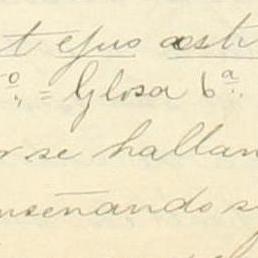 t ejus æsti
º. = Glosa 6ª.
r se hallan
nseñando s